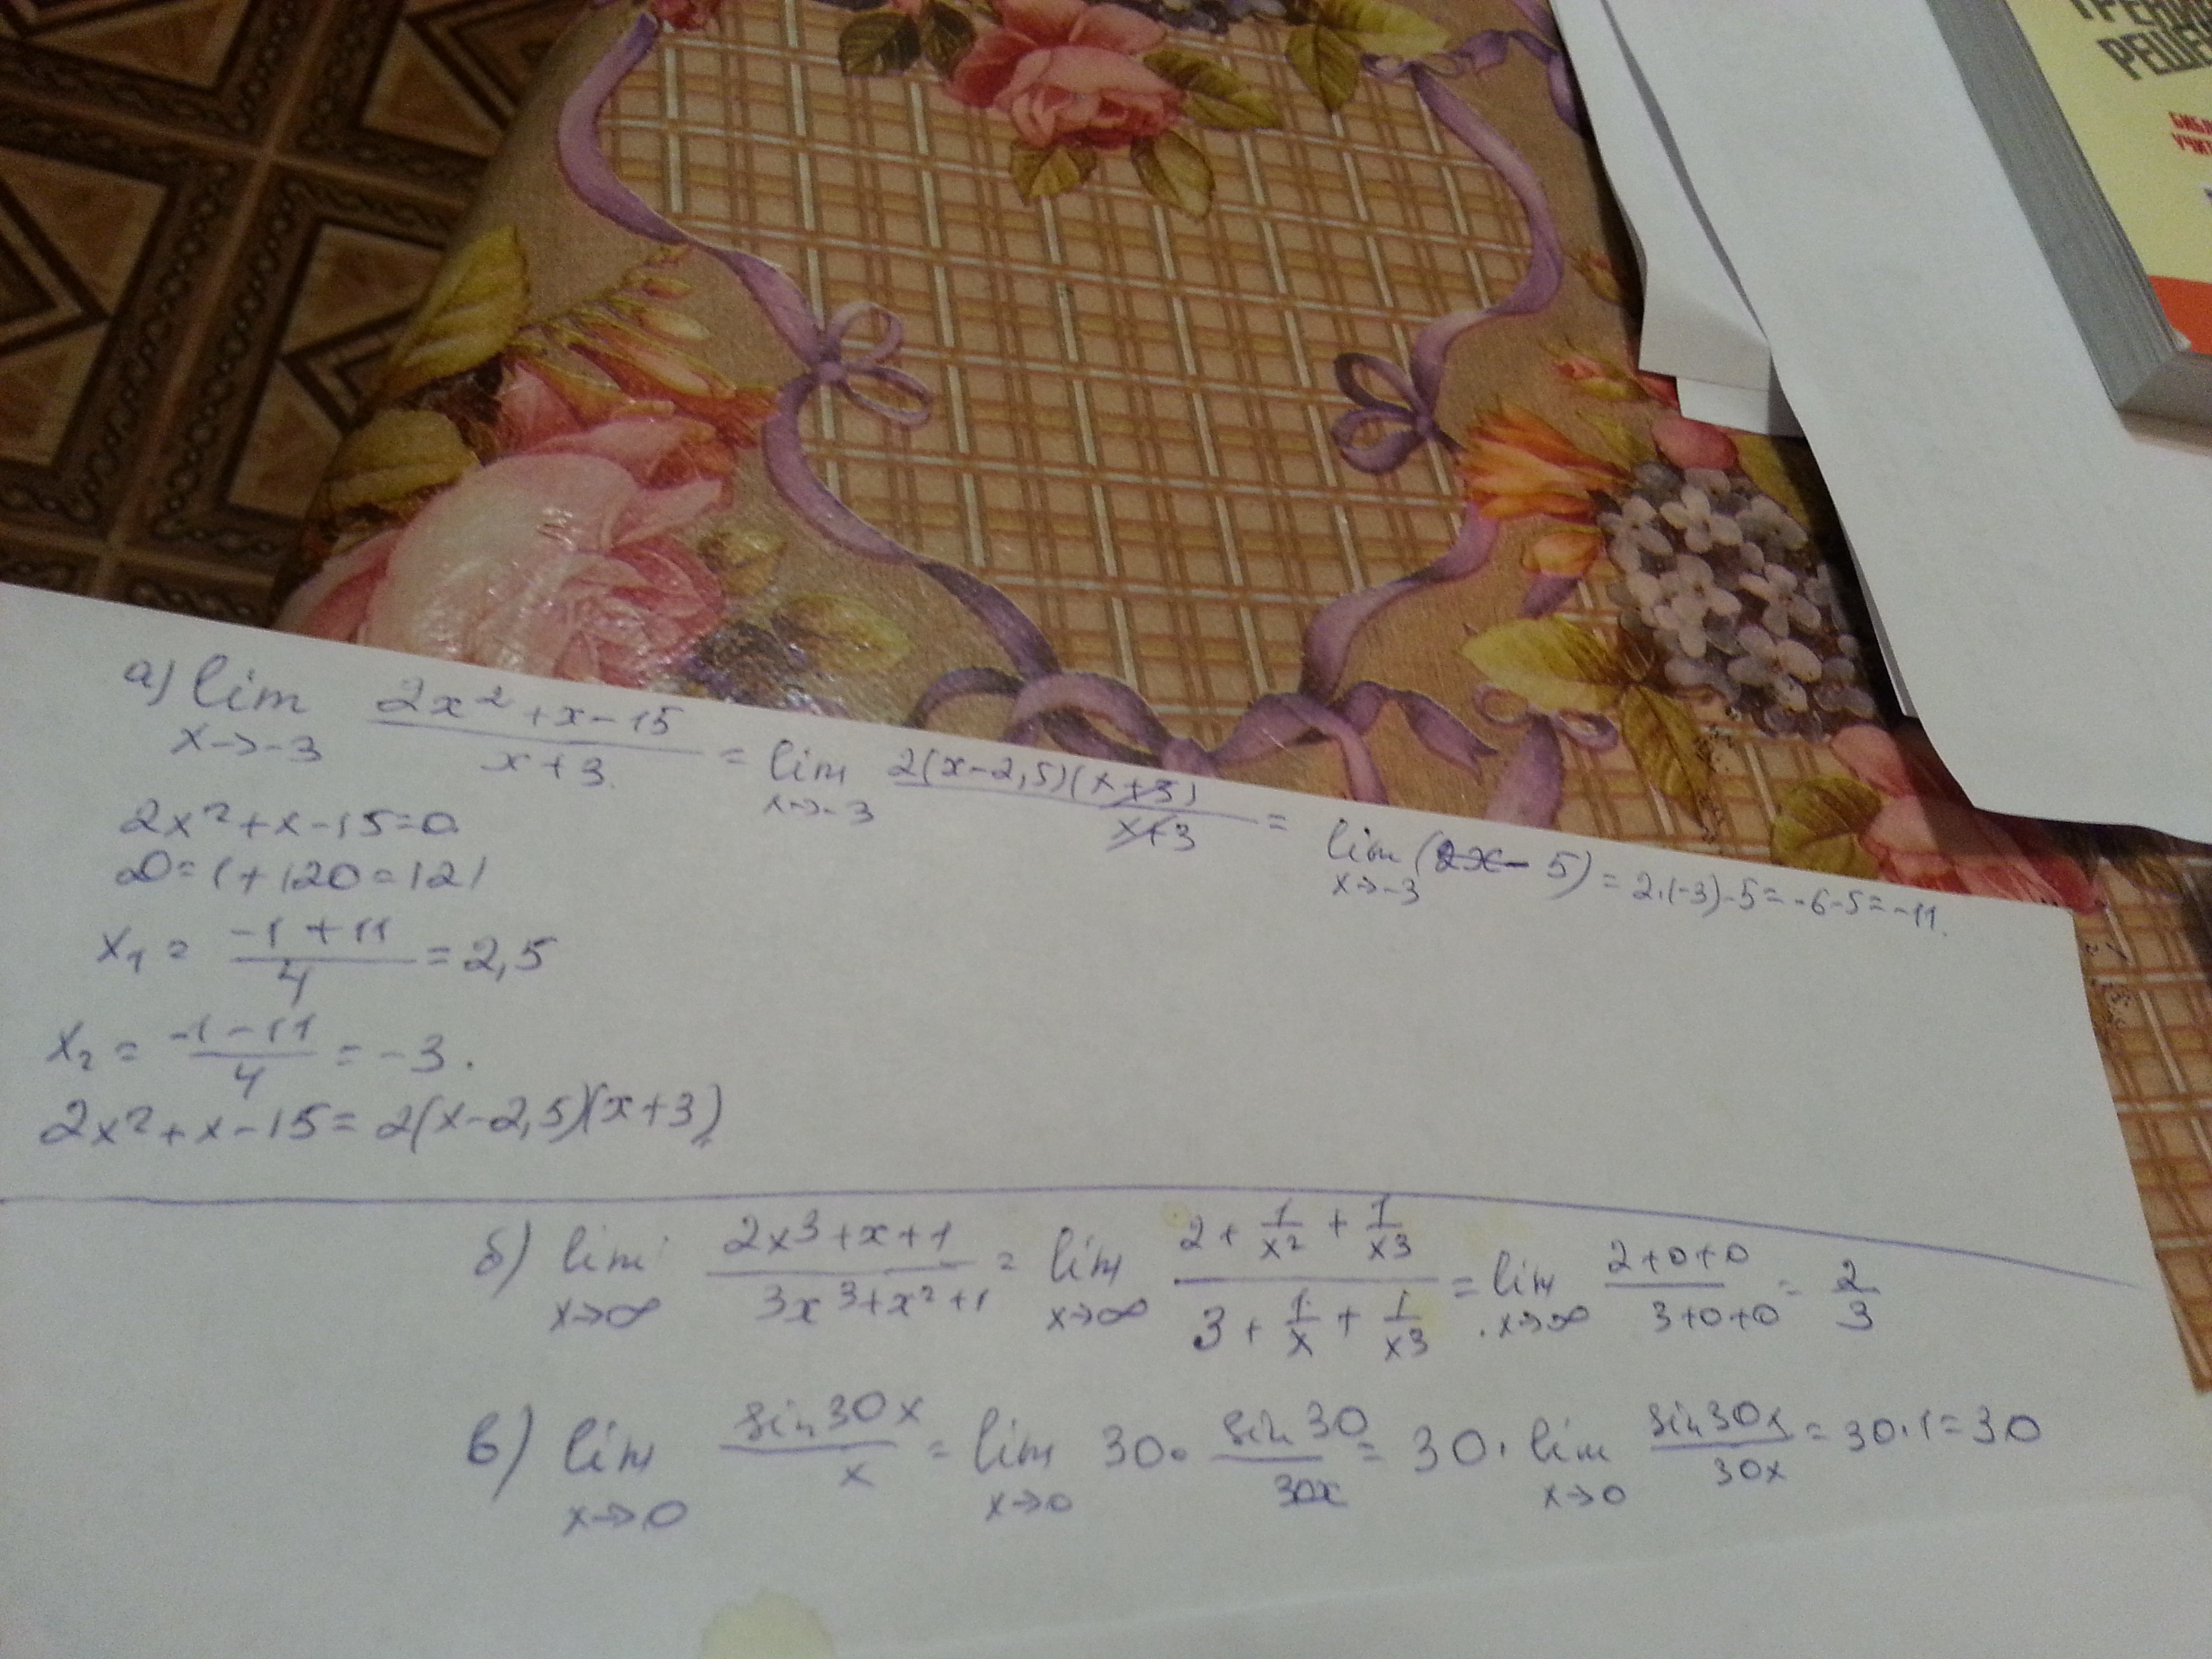 РЕШЕ
а) lim 2x²+x-15 / x+3 = lim 2(x-2,5)(x+3) / x+3 = lim (2x-5) = 2·(-3)-5=-6-5=-11.
x→-3 x→-3 x→-3
2x²+x-15=0
D=1+120=121
x₁ = -1+11 / 4 = 2,5
x₂ = -1-11 / 4 = -3.
2x²+x-15=2(x-2,5)(x+3)
б) lim 2x³+x+1 / 3x³+x²+1 = lim 2+1/x²+1/x³ / 3+1/x+1/x³ = lim 2+0+0 / 3+0+0 = 2/3
x→∞ x→∞ x→∞
в) lim sin30x / x = lim 30· sin30 / 30x = 30· lim sin30x / 30x = 30·1=30
x→0 x→0 x→0